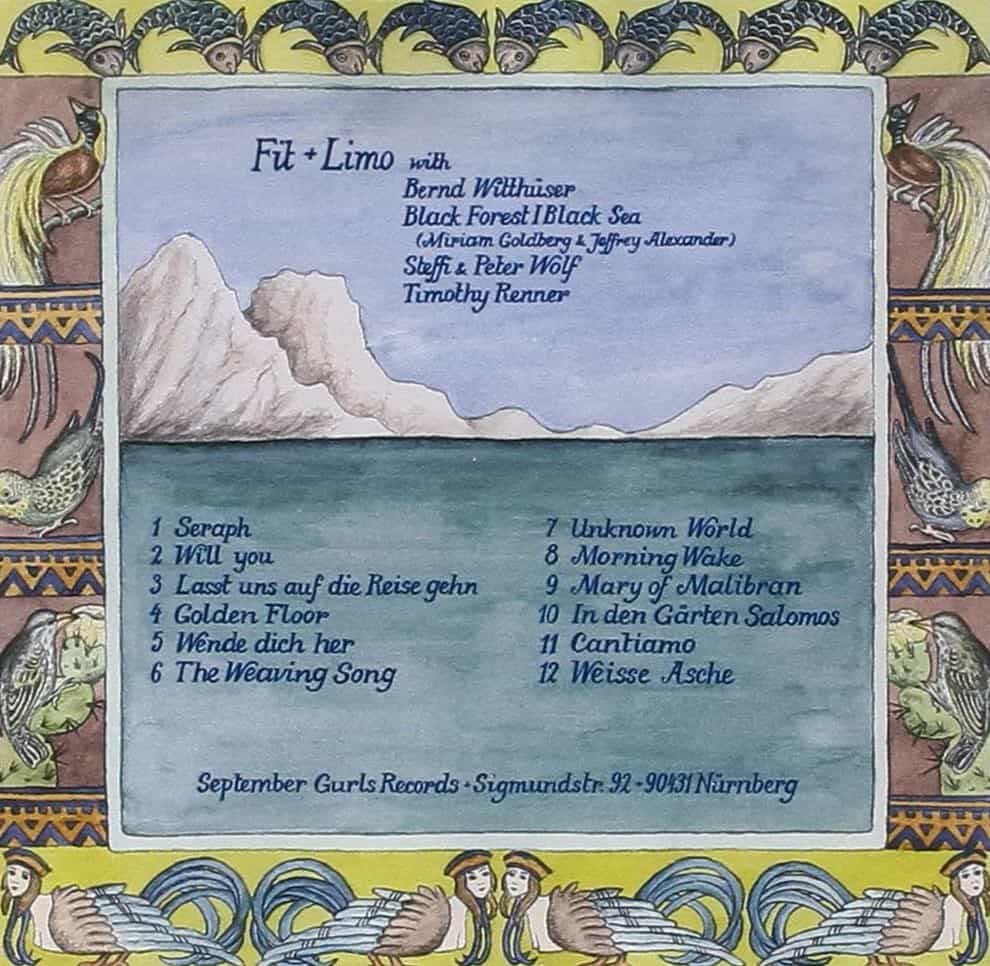 Fit + Limo with
Bernd Witthüser
Black Forest / Black Sea
(Miriam Goldberg & Jeffrey Alexander)
Steffi & Peter Wolf
Timothy Renner
1 Seraph
2 Will you
3 Lasst uns auf die Reise gehn
4 Golden Floor
5 Wende dich her
6 The Weaving Song
7 Unknown World
8 Morning Wake
9 Mary of Malibran
10 In den Gärten Salomos
11 Cantiamo
12 Weisse Asche
September Gurls Records • Sigmundstr. 92 • 90431 Nürnberg